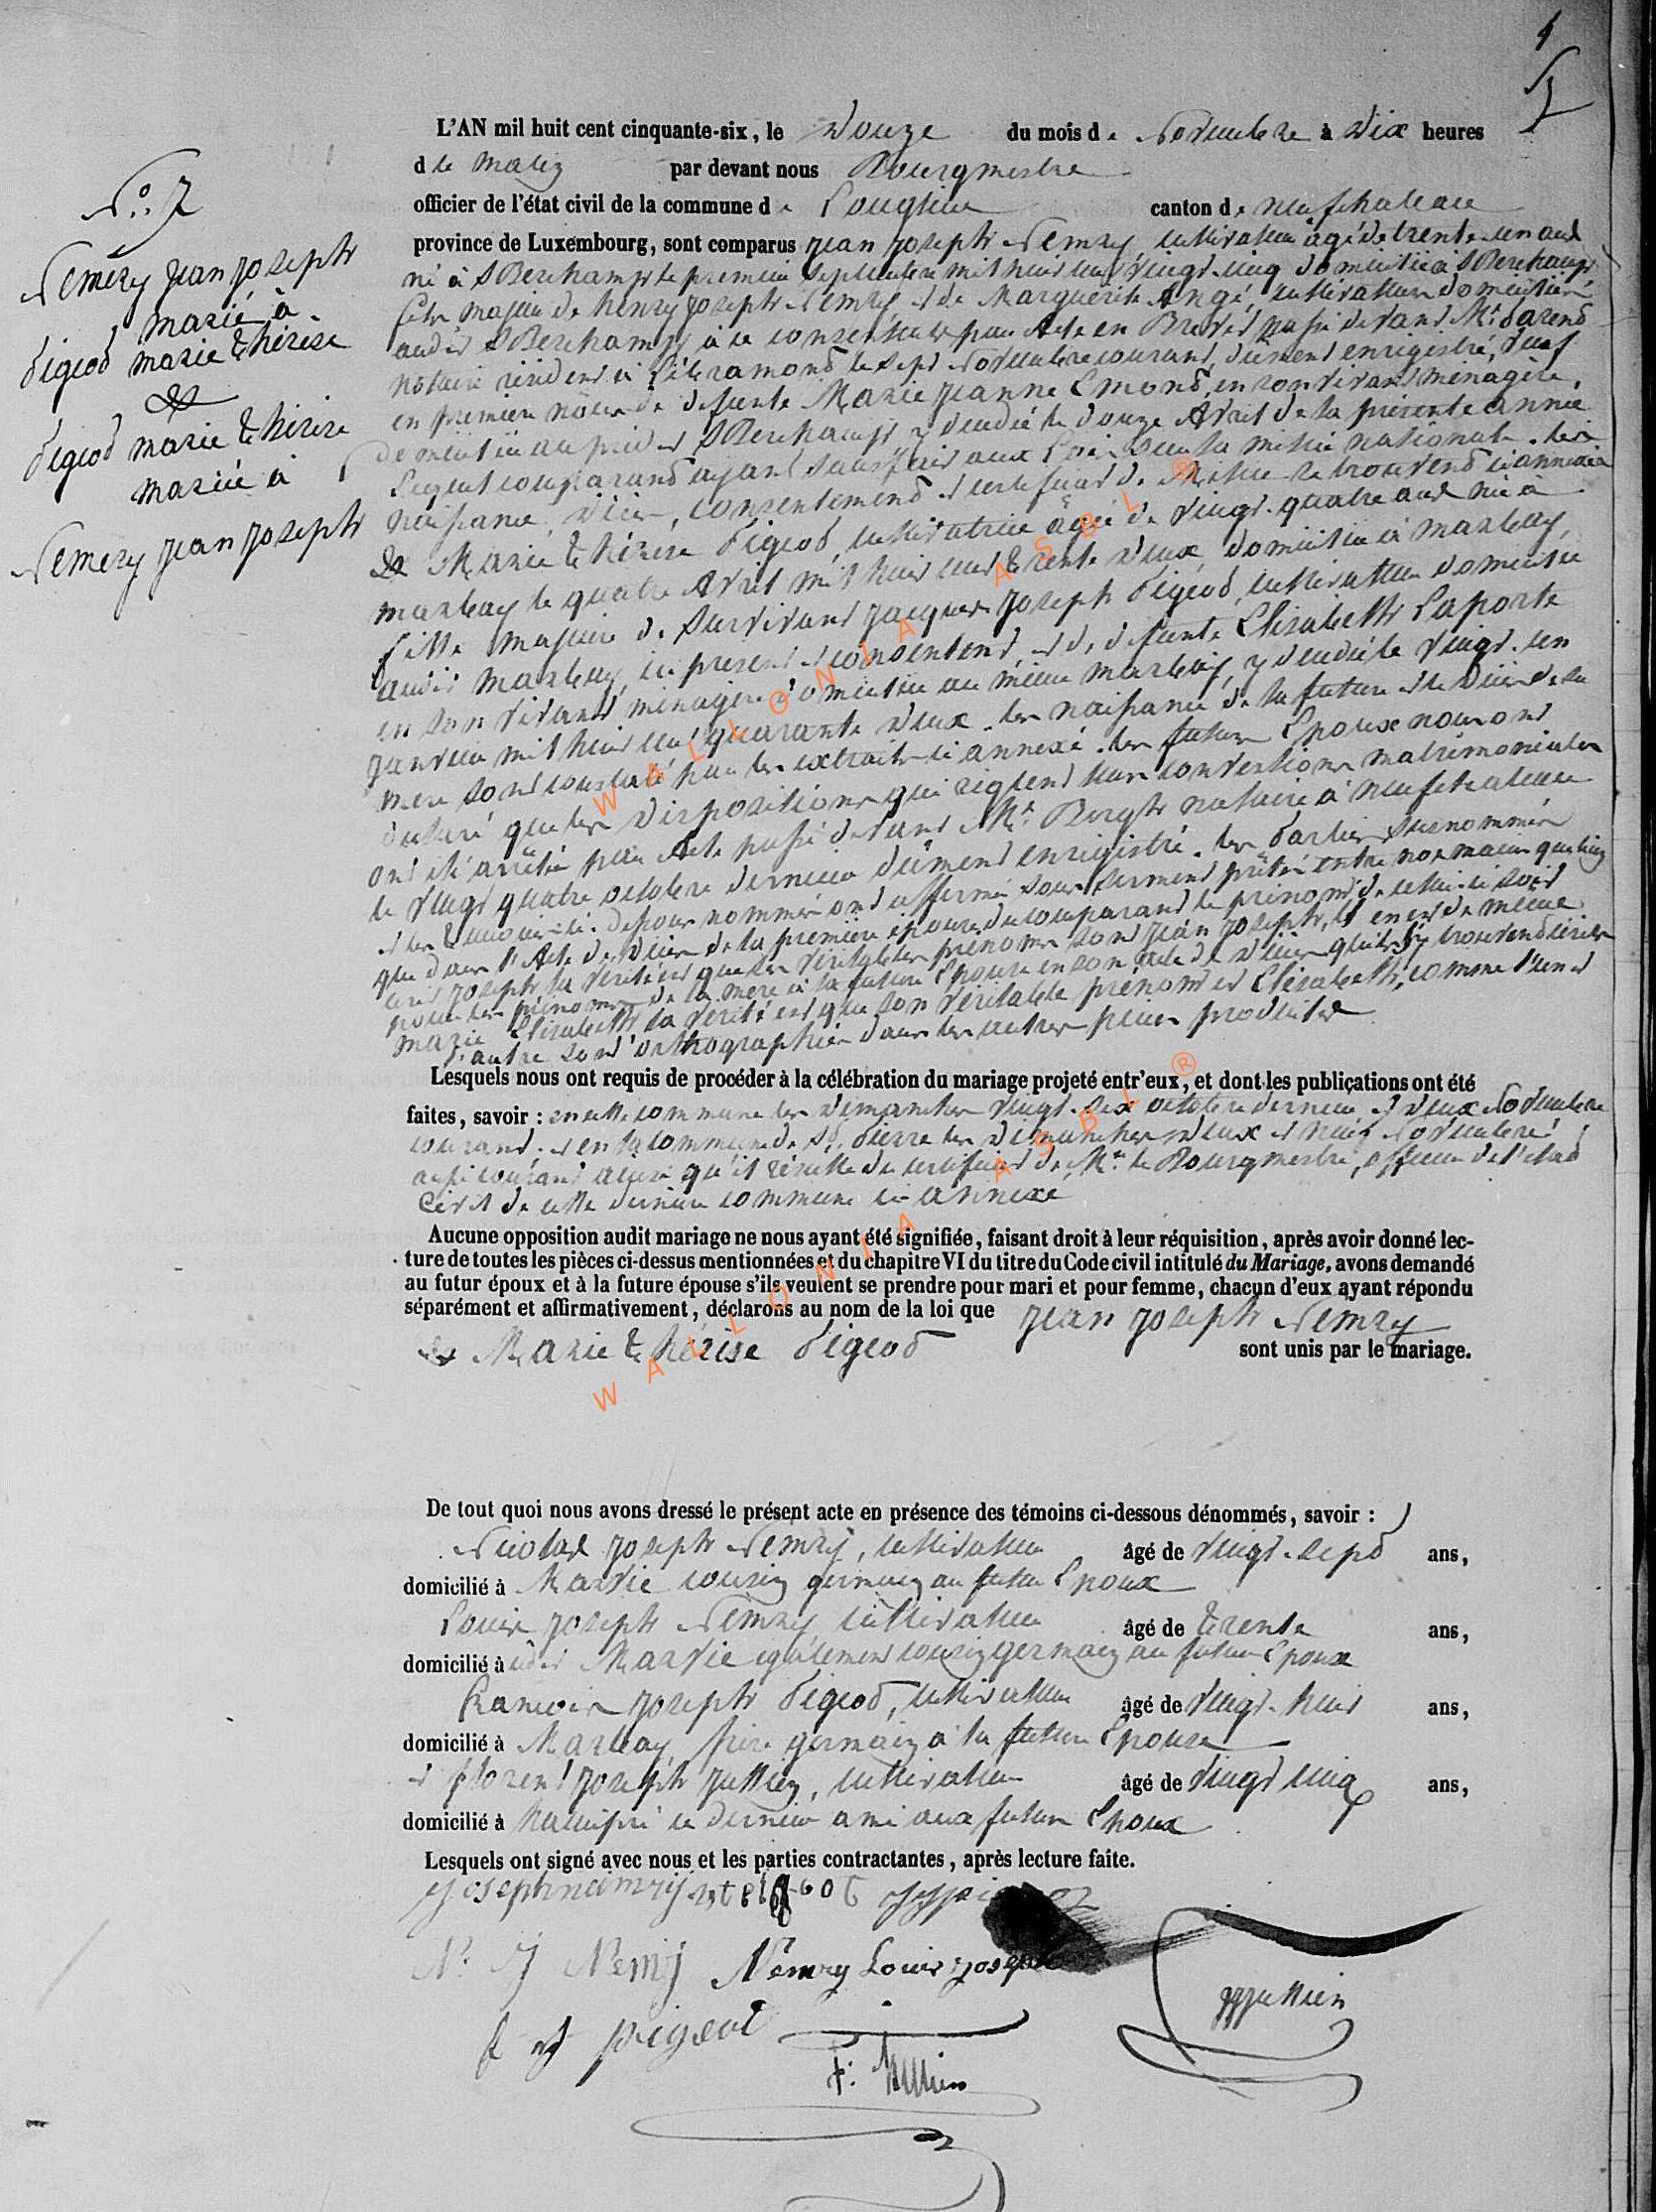 N° 7
Nemery jean joseph
marié à
Pigeod marie thérèse
&
Pigeod marie thérèse
mariée à
Nemery jean joseph
L'AN mil huit cent cinquante-six, le Douze du mois de Novembre à Dix heures
du matin par devant nous Bourgmestre
officier de l'état civil de la commune de Longlier canton de neufchateau
province de Luxembourg, sont comparus jean joseph Nemry, cultivateur âgé de trente-un ans
né à le premier septembre mil huit cent vingt-cinq domicilié à
fils majeur de henry joseph Nemry et de Marguerite Angé, cultivateurs domiciliés
audit à ce consentants par Acte en Brevet passé devant Mr.
notaire résident à le sept Novembre courant, dûment enregistré, veuf
en première nôce de defunte Marie jeanne Emond, en son vivant ménagère,
domiciliée au predit y décédée le douze Avril de la présente année
Lequel comparand ayant satisfait aux Lois sur la milice nationale. les
naissance, décès, consentement et certificat de Milice se trouvent ci annexés
& Marie thérèse Pigeod, cultivatrice âgée de vingt-quatre ans née à
marbay le quatre Avril mil huit cent trente deux, domiciliée à marbay,
fille majeure de survivant jacques joseph Pigeod, cultivateur domicilié
audit marbay, ici present et consentent, et de defunte Elisabeth Laporte
en son vivant ménagère domiciliée au même marbay, y décédée le vingt-un
janvier mil huit cent quarante deux. les naissance de la future et le Décès de sa
mère sont constaté par les extraits ci annexé. les futurs Epoux nous ont
déclaré que les Dispositions qui règlent leurs conventions matrimoniales
ont été arrêtée par Acte passé devant Mr. notaire à neufchateau
le vingt quatre octobre dernier dûment enregistré. les Parties susnommées
et les témoins ci-dessous nommés ont affermé sous serment prêté entre nos mains que bien
que dans l'Acte de Décès de la première épouse du comparand le prénom de celui-ci soit
écrit joseph la vérité est que les véritables prénoms sont jean joseph, il en est de même
pour les prénoms de la mère à la future Epouse en son acte de décès qu'ils s'y trouvent écrits
marie Elisabeth la vérité est que son véritable prénom est Elisabeth, comme l'un et
l'autre sont orthographiés dans les autres pièces produites
Lesquels nous ont requis de procéder à la célébration du mariage projeté entr'eux, et dont les publications ont été
faites, savoir : en cette commune les Dimanches vingt-six octobre dernier et deux Novembre
courant, et en la commune de St. Pierre les Dimanches deux et neuf Novembre
aussi courant ainsi qu'il résulte du certificat de Mr. le Bourgmestre, officier de l'état
Civil de cette dernière commune ci-annexé
Aucune opposition audit mariage ne nous ayant été signifiée, faisant droit à leur réquisition, après avoir donné lec-
ture de toutes les pièces ci-dessus mentionnées et du chapitre VI du titre du Code civil intitulé du Mariage, avons demandé
au futur époux et à la future épouse s'ils veulent se prendre pour mari et pour femme, chacun d'eux ayant répondu
séparément et affirmativement, déclarons au nom de la loi que jean joseph Nemry
& Marie thérèse Pigeod sont unis par le mariage.
De tout quoi nous avons dressé le présent acte en présence des témoins ci-dessous dénommés, savoir :
Nicolas joseph Nemry, cultivateur âgé de vingt-sept ans,
domicilié à Marvie cousin germain au futur Epoux
Louis joseph Nemry, cultivateur âgé de trente ans,
domicilié à udit Marvie également cousin germain au futur Epoux
françois joseph Pigeod, cultivateur âgé de vingt-huit ans,
domicilié à Marbay frère germain à la future Epouse
et florent joseph jullien, cultivateur âgé de vingt cinq ans,
domicilié à ce dernier ami aux futurs Epoux
Lesquels ont signé avec nous et les parties contractantes, après lecture faite.
joseph nemry
N. j Nemry Nemry Louis joseph
jullien
f j pigeot
F. jullien
WALLONIA ASBL ®
WALLONIA ASBL ®